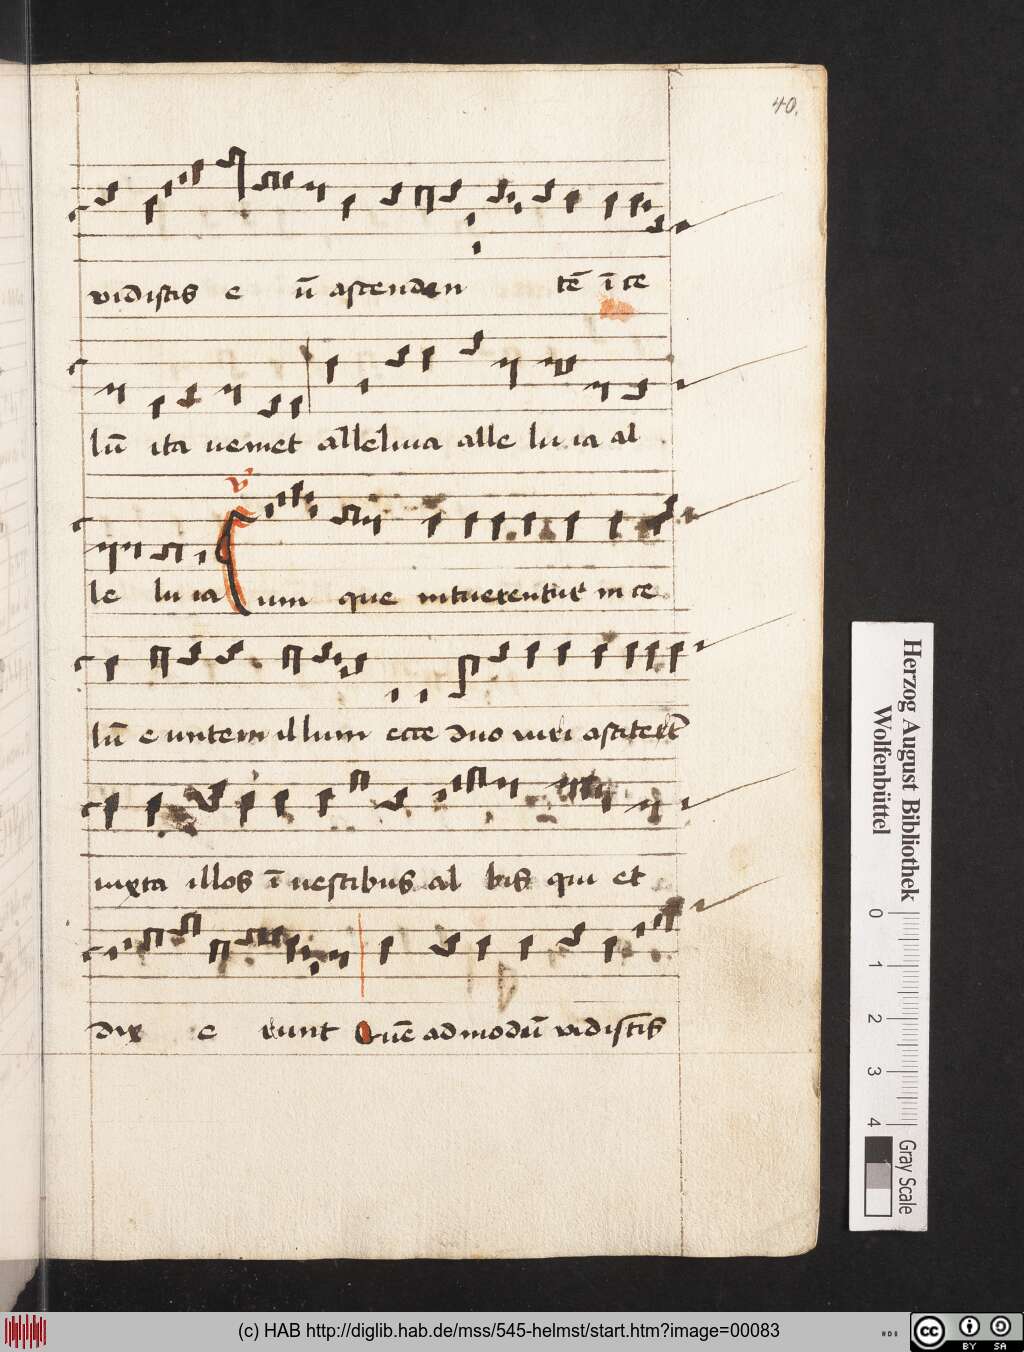 40.
vidistis e ū ascenden tē ī ce
lū ita veniet alleluia alle lu ia al
v
le lu ia Cum que intuerentur in ce
lū e untem illum ecce duo viri astitert
iuxta illos ī vestibus al bis qui et
dix e runt Quē admodū vidistis
Herzog August Bibliothek
Wolfenbüttel
0 1 2 3 4
Gray Scale
(c) HAB http://diglib.hab.de/mss/545-helmst/start.htm?image=00083
cc BY SA